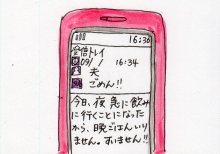 16:36
受信トレイ
09/1 16:34
夫
ごめん!!
今日、夜急に飲み
に行くことになった
から、晩ごはんいり
ません。すいません!!